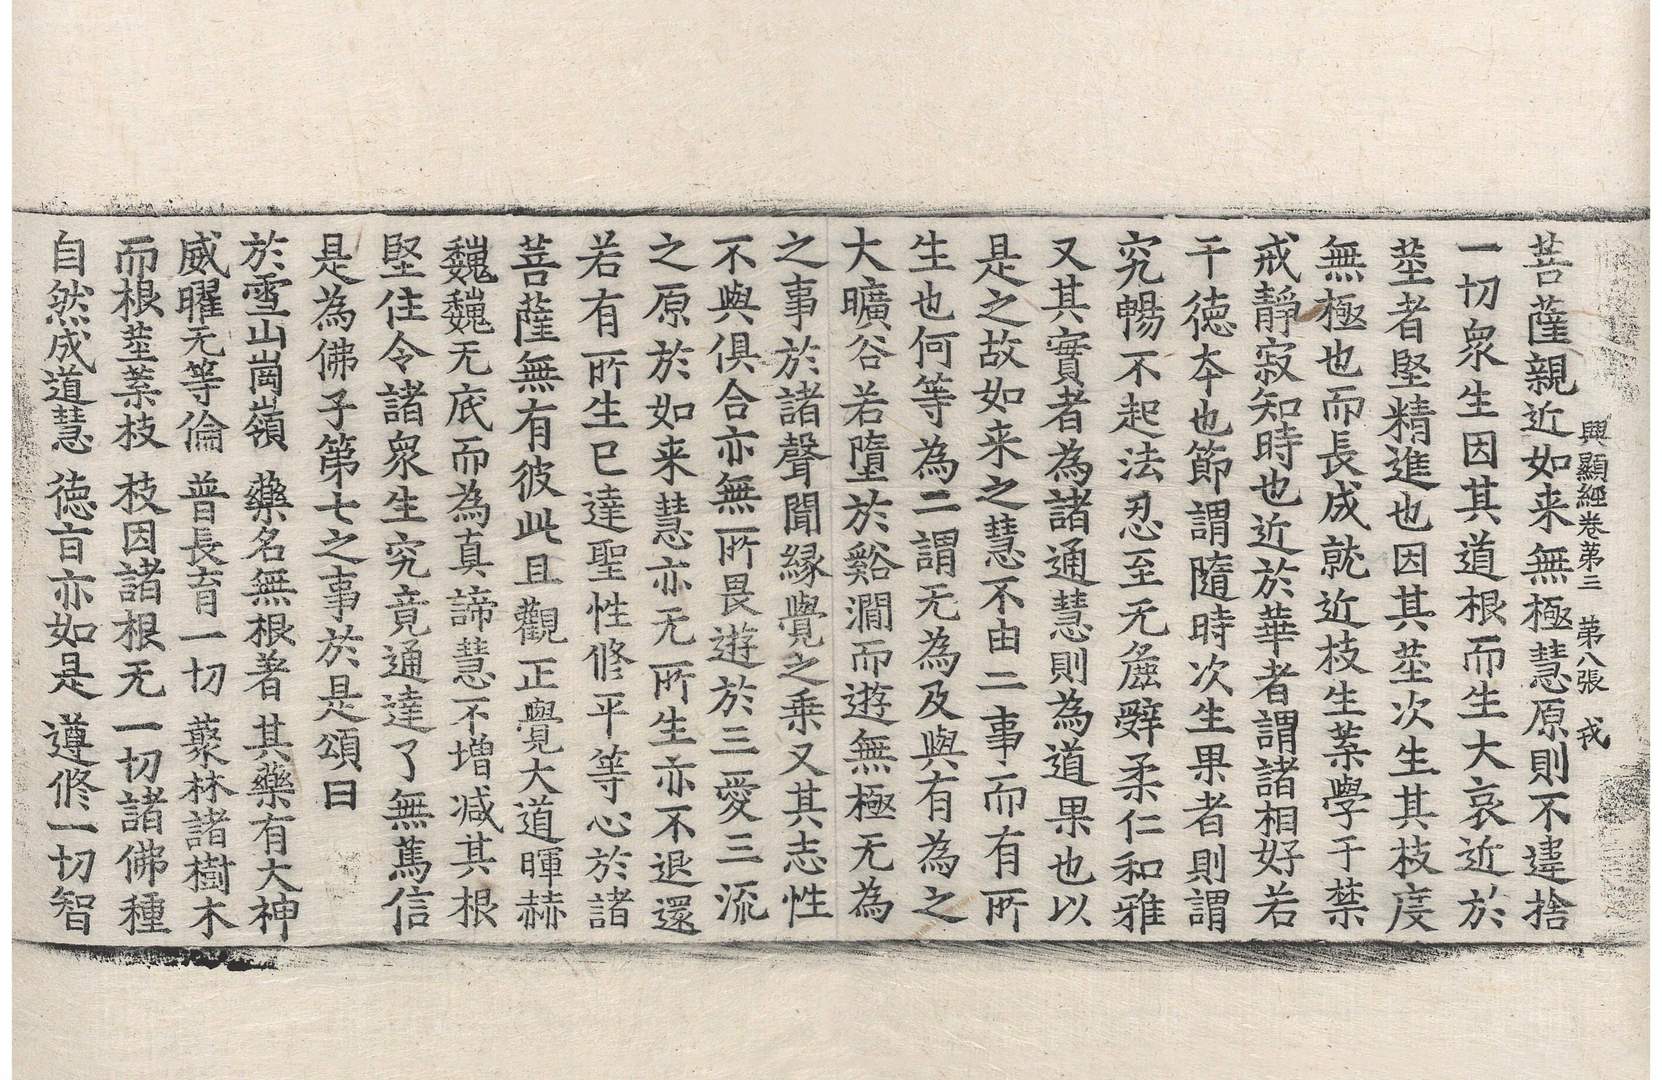 興顯經卷第三　第八張　戎
菩薩親近如来無極慧原則不違捨
一切衆生因其道根而生大哀近於
莖者堅精進也因其莖次生其枝度
無極也而長成就近枝生葉學于禁
戒靜寂知時也近於華者謂諸相好若
干徳夲也節謂隨時次生果者則謂
究暢不起法忍至无㞃礕柔仁和雅
又其實者為諸通慧則為道果也以
是之故如来之慧不由二事而有所
生也何等為二謂无為及與有為之
大曠谷若墮於谿澗而遊無極无為
之事於諸聲聞緣覺之乗又其志性
不與俱合亦無所畏遊於三愛三流
之原於如来慧亦无所生亦不退還
若有所生已達聖性修平等心於諸
菩薩無有彼此且觀正覺大道暉赫
巍巍无底而為真諦慧不增减其根
堅住令諸衆生究竟通達了無蔿信
是為佛子第七之事於是頌曰
於雪山崗嶺　藥名無根著　其藥有大神
威曜无等倫　普長育一切　藂林諸樹木
而根莖葉枝　枝因諸根无　一切諸佛種
自然成道慧　徳吉亦如是　遵修一切智